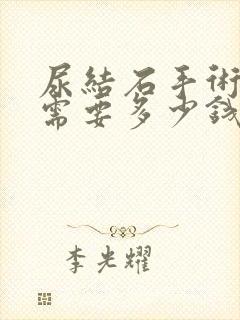 尿結石手術
需要多少錢
李光耀